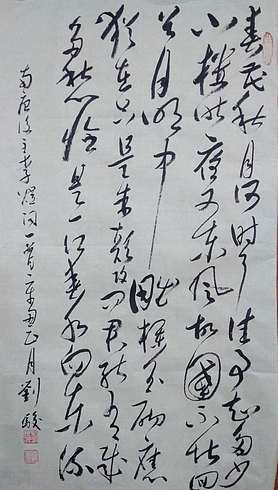 春花秋月何时了往事知多少
小樓昨夜又東風故國不堪回
首月明中雕欄玉砌應
猶在只是朱顏改问君能有幾
多愁恰是一江春水向東流
南唐後主李煜词一首正月劉駿